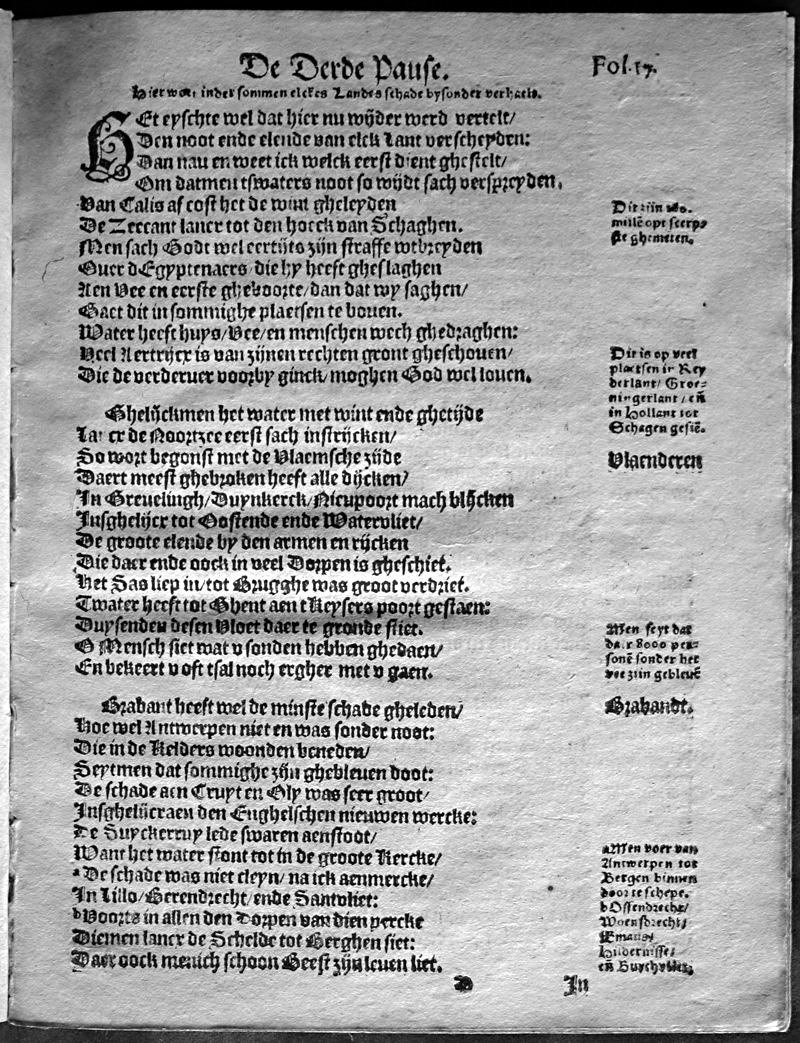 De Derde Pause.
Fol. 17.
Hier wort inder sommen elckes Landes schade bysonder verhaelt.
HEt eyschte wel dat hier nu wijder werd vertelt/
Den noot ende elende van elck Lant verscheyden:
Dan nau en weet ick welck eerst dient ghestelt/
Om datmen tswaters noot so wijdt sach verspreyden.
Van Calis af cost het de wint gheleyden
De Zeecant lancx tot den hoeck van Schaghen.
Men sach Godt wel eertijts zijn straffe wtbreyden
Ouer dEgyptenaers/ die hy heeft gheslaghen
Aen Vee en eerste gheboorte/ dan dat wy saghen/
Gaet dit in sommighe plaetsen te bouen.
Water heeft huys/ Vee/ en menschen wech ghedraghen:
Veel Aertrijcx is van zijnen rechten gront gheschouen/
Die de verderuer voorby ginck/ moghen God wel louen.
Dit zijn
mille opt
ste ghemeten.
Dit is op veel
plaetsen in Rey
derlant/ Groe-
ningerlant/ eñ
in Hollant tot
Schagen gesiē.
Ghelijckmen het water met wint ende ghetijde
Lancx de Noortzee eerst sach instrijcken/
So wort begonst met de Vlaemsche zijde
Daert meest ghebroken heeft alle dijcken/
In Greuelingh/ Duynkerck/ Nieupoort mach blijcken
Insghelijcx tot Oostende ende Watervliet/
De groote elende by den armen en rijcken
Die daer ende oock in veel Dorpen is gheschiet.
Het Sas liep in/ tot Brugghe was groot verdriet.
Twater heeft tot Ghent aen tKeysers poort gestaen:
Duysenden desen Vloet daer te gronde stiet.
O Mensch siet wat v sonden hebben ghedaen/
En bekeert v oft tsal noch ergher met v gaen.
Vlaenderen
Men seyt dat
daer 8000 per-
sonē sonder het
vee zijn gebleuē
Brabant heeft wel de minste schade gheleden/
Hoe wel Antwerpen niet en was sonder noot:
Die in de Kelders woonden beneden/
Seytmen dat sommighe zijn ghebleuen doot:
De schade aen Cruyt en Oly was seer groot/
Insghelijcx aen den Enghelschen nieuwen wercke:
De Suyckerruy lede swaren aenstoot/
Want het water stont tot in de groote Kercke/
a De schade was niet cleyn/ na ick aenmercke/
In Lillo/ Berendrecht/ ende Santvliet:
b Voorts in allen den Dorpen van dien percke
Diemen lancx de Schelde tot Berghen siet:
Daer oock menich schoon Beest zijn leuen liet.
Brabandt.
a Men voer van
Antwerpen tot
Bergen binnen
door te schepe.
b Ossendrecht/
Woensdrecht/
Hinckelenoort/
Hildernisse/
eñ
D
In